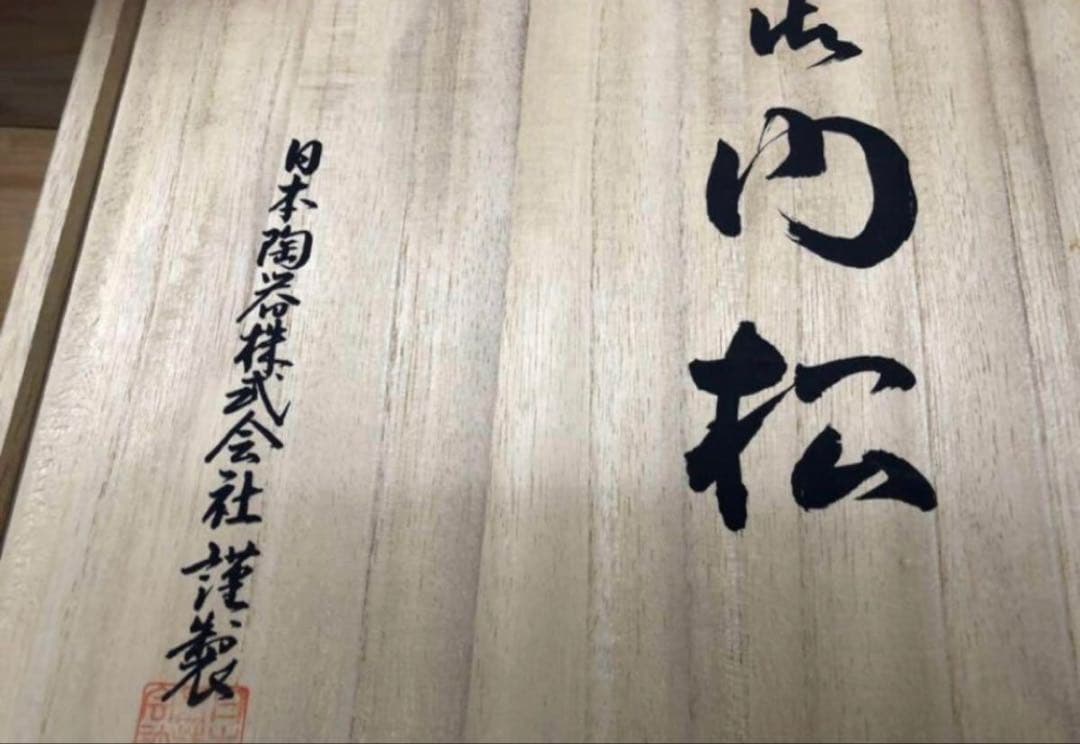 内松
日本陶器株式会社謹製